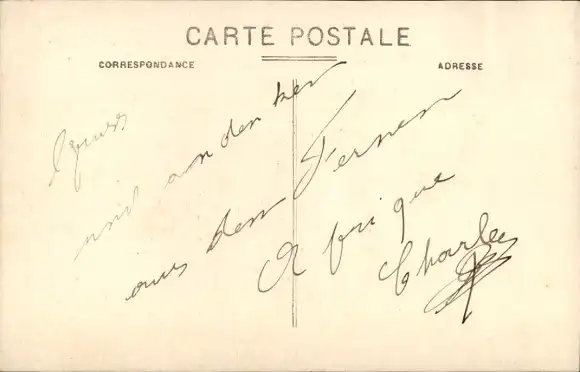 CARTE POSTALE
CORRESPONDANCE
ADRESSE
und andenken
aus dem Fernem
Afrique
Charles